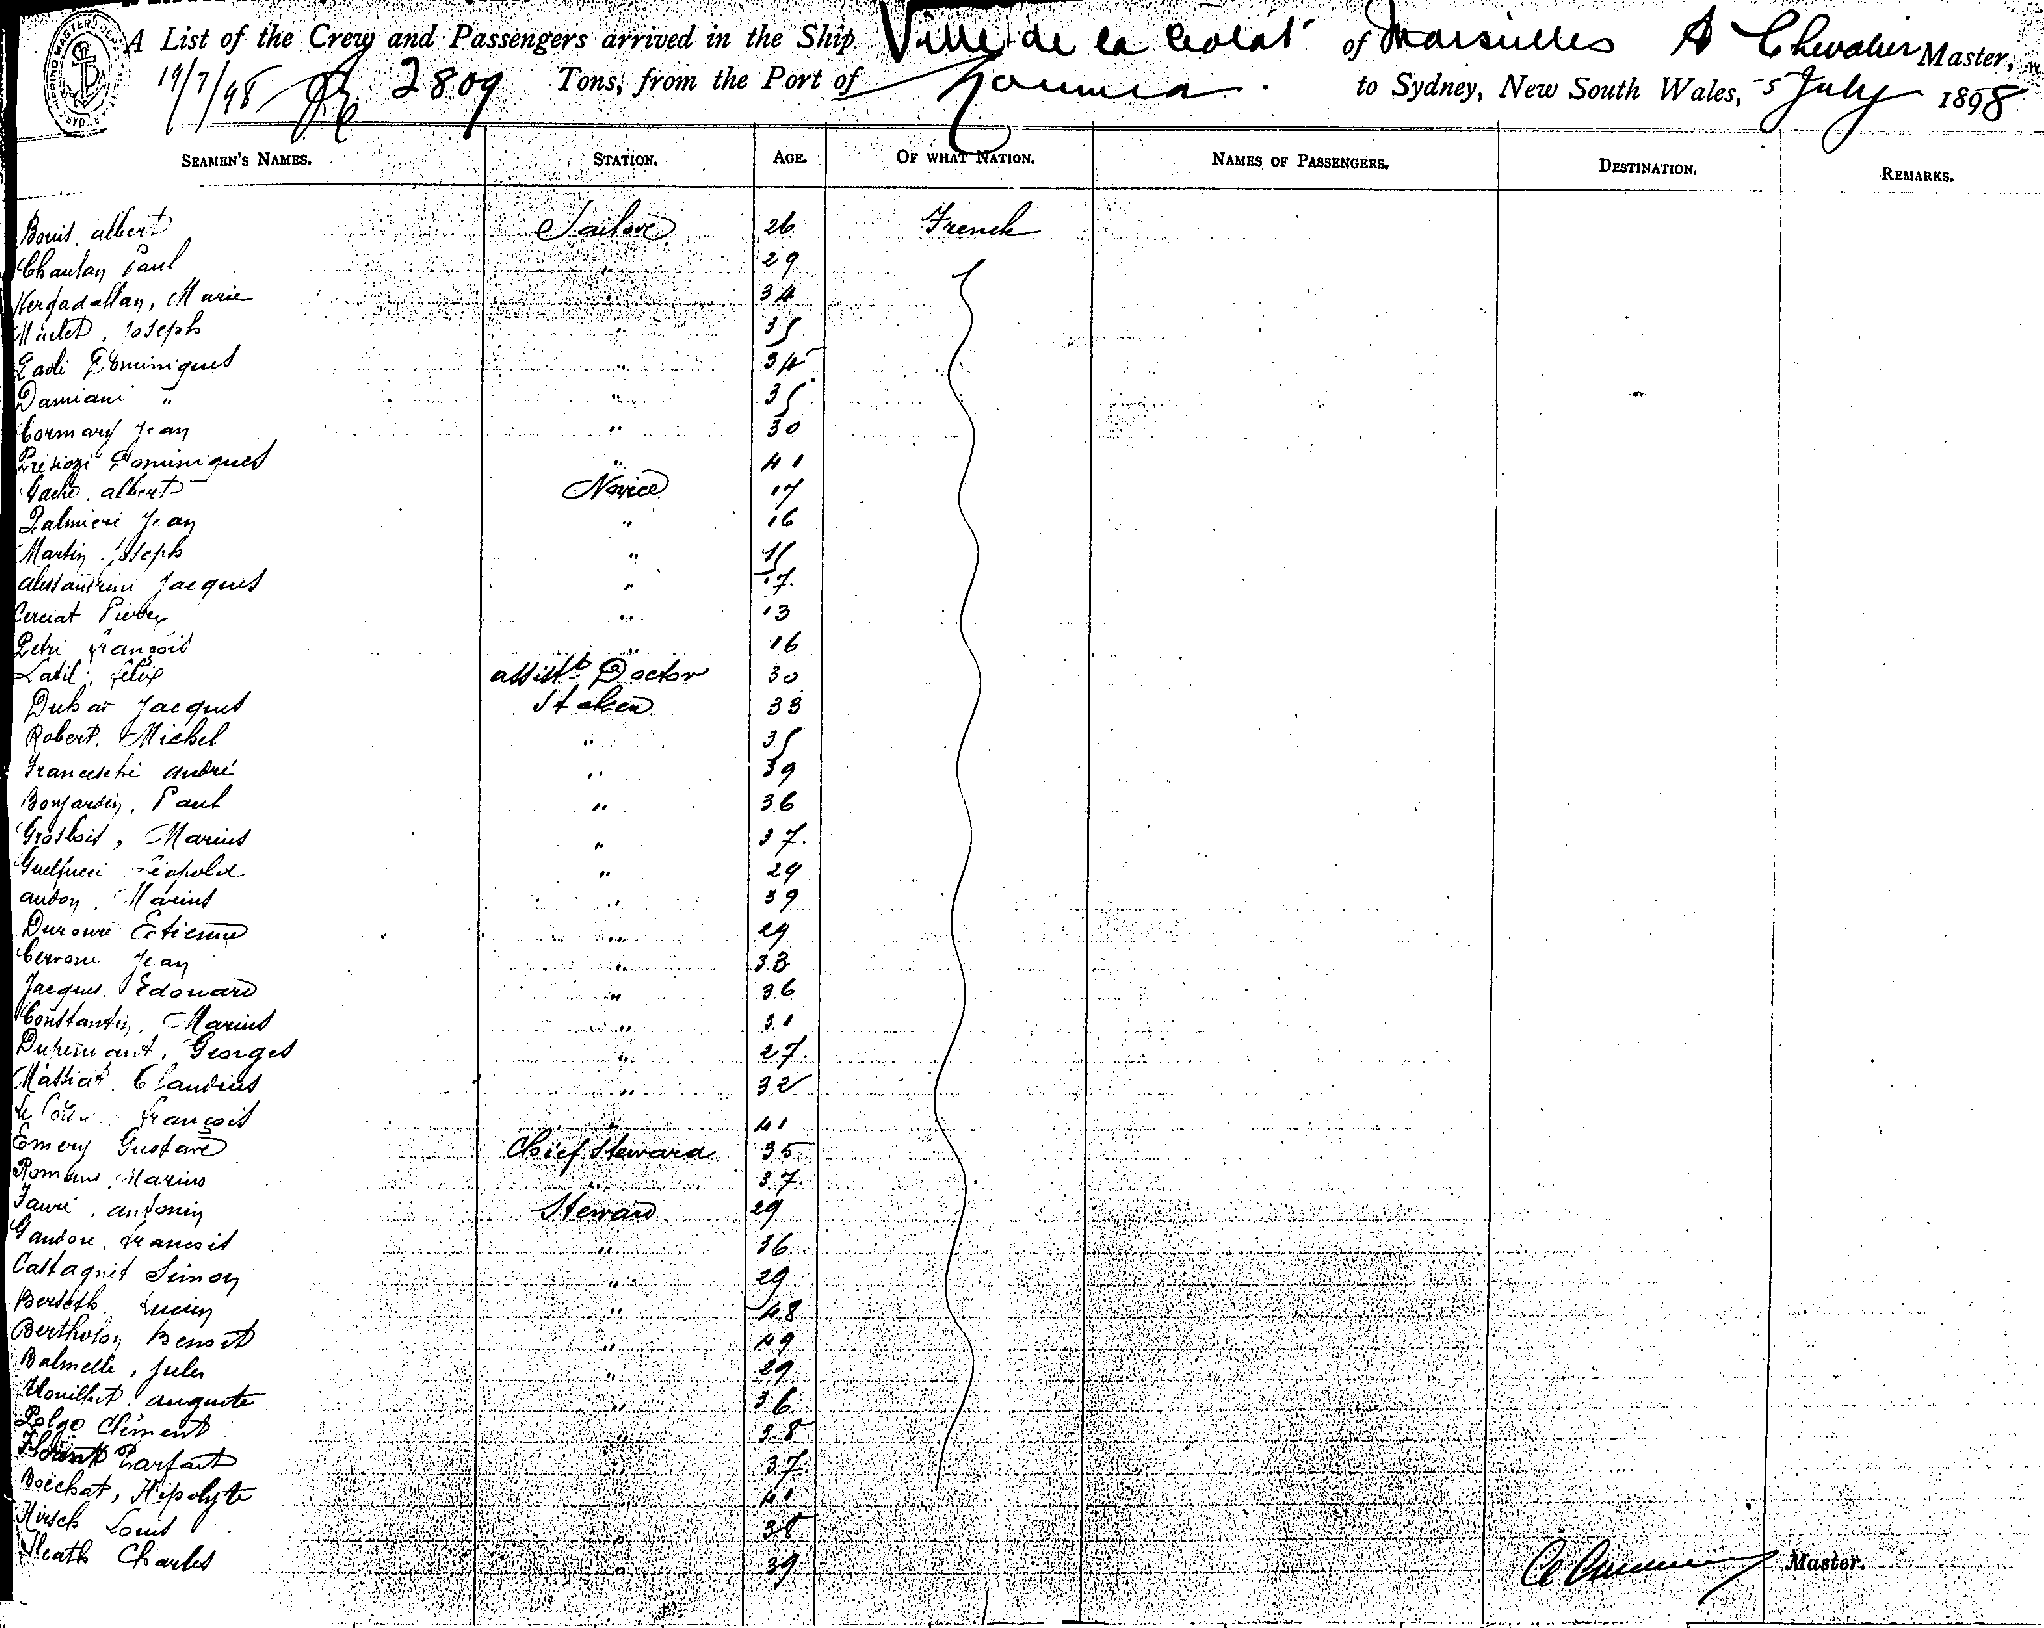 A List of the Crew and Passengers arrived in the Ship Ville de la Ciotat of Marseilles A Chevalier Master,
19/7/98 2809 Tons, from the Port of Noumea to Sydney, New South Wales, 5 July 1898
SEAMEN'S NAMES. STATION. AGE. OF WHAT NATION. NAMES OF PASSENGERS. DESTINATION. REMARKS.
Bouis. albert Sailor 26 French
Paul " 29
Marie " 34
Joseph " 35
Paoli Dominiques " 34
Damiani " " 35
Cormary Jean " 30
Dominiques " 41
Gache. albert Novice 17
Palmieri Jean " 16
Martin Joseph " 15
alessandrini Jacques " 17
Pierre " 13
Petri François " 16
Latil, Felix assist Doctor 30
Jacques Stoker 33
Robert. Michel " 35
Franceschi andré " 39
Bonjardin, Paul " 36
Grosbois, Marius " 37
Guelfucci Léopold " 29
audon, Marius " 39
Etienne " 29
Cervoni Jean " 33
Jacques. Edouard " 36
Constantin, Marius " 31
Georges " 27
Claudius " 32
François " 41
Emery Gustave Chief Steward 35
Romans Marius " 37
Favre, antonin Steward 29
François " 36
Castagnet Simon " 29
Lucien " 48
Bertholon Benoit " 49
Balmelle, Jules " 29
auguste " 36
Clément " 38
Parfait " 37
Boichat, Hipolyte " 41
Hirsch Louis " 38
Heath Charles " 39
Master.